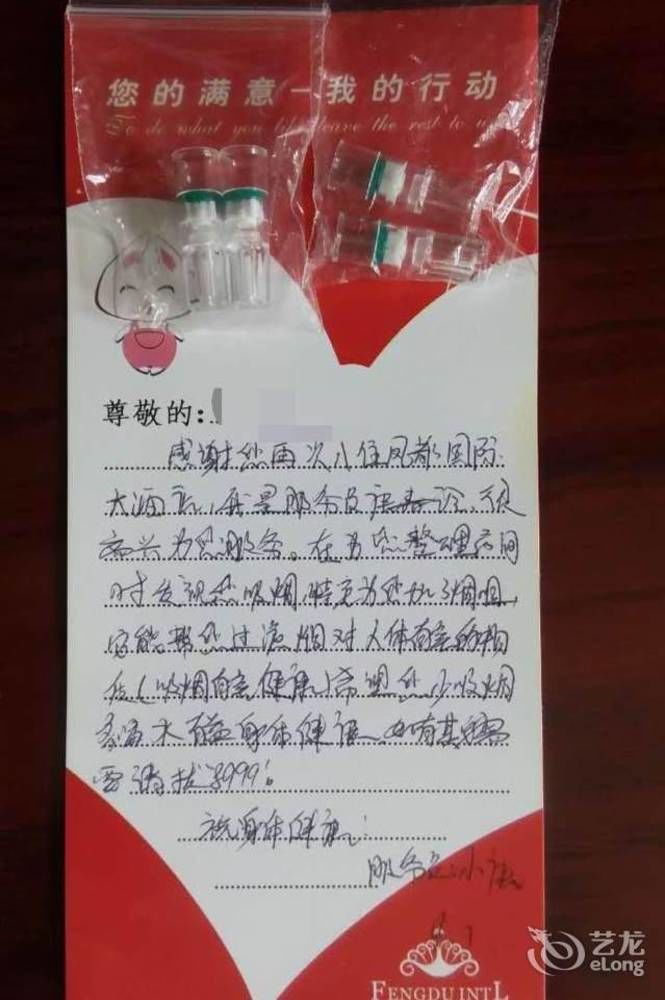 您的满意—我的行动
To do what you like leave the rest to us
尊敬的:
感谢您再次入住凤都国际
大酒店,我是服务员唐春玲,很
高兴为您服务。在为您整理房间
时发现您吸烟,特意为您加了烟咀,
它能帮您过滤烟对人体有害的物
质(吸烟有害健康)希望您少吸烟
多喝水有益身体健康,如有其它需
要请拔9999!
祝:身体健康!
服务员:小唐
FENGDU INT'L
艺龙
eLong